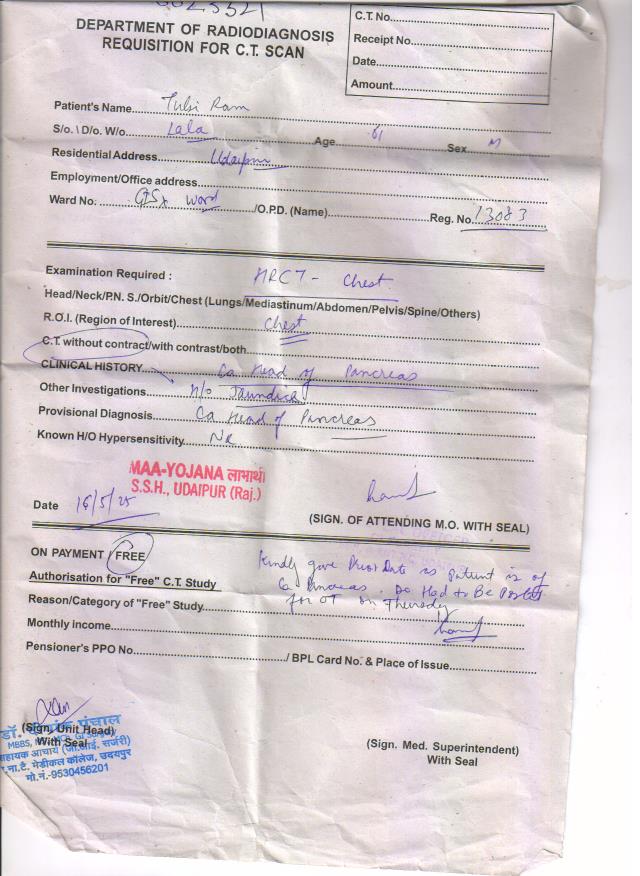 DEPARTMENT OF RADIODIAGNOSIS
REQUISITION FOR C.T. SCAN
C.T. No.
Receipt No.
Date
Amount
Patient's Name Tulsi Ram
S/o. \ D/o. W/o Lala Age 61 Sex M
Residential Address Udaipur
Employment/Office address
Ward No. GSx Word /O.P.D. (Name) Reg. No. 13083
Examination Required : HRCT - Chest
Head/Neck/P.N. S./Orbit/Chest (Lungs/Mediastinum/Abdomen/Pelvis/Spine/Others)
R.O.I. (Region of Interest) Chest
C.T. without contract/with contrast/both
CLINICAL HISTORY Ca Head of Pancreas
Other Investigations H/o Jaundice
Provisional Diagnosis Ca Head of Pancreas
Known H/O Hypersensitivity
MAA-YOJANA लाभार्थी
S.S.H., UDAIPUR (Raj.)
Date 16/5/25
(SIGN. OF ATTENDING M.O. WITH SEAL)
ON PAYMENT / FREE
Kindly give Prior Date as patient is of
Authorisation for "Free" C.T. Study Ca Pancreas. Had to Be Posted
Reason/Category of "Free" Study for OT on Thursday
Monthly income
Pensioner's PPO No. / BPL Card No. & Place of Issue
(Sign. Unit Head)
With Seal
डॉ. पंचाल
MBBS,
सहायक आचार्य (जी.आई. सर्जरी)
र.ना.टै. मेडीकल कॉलेज, उदयपुर
मो.नं.-9530456201
(Sign. Med. Superintendent)
With Seal